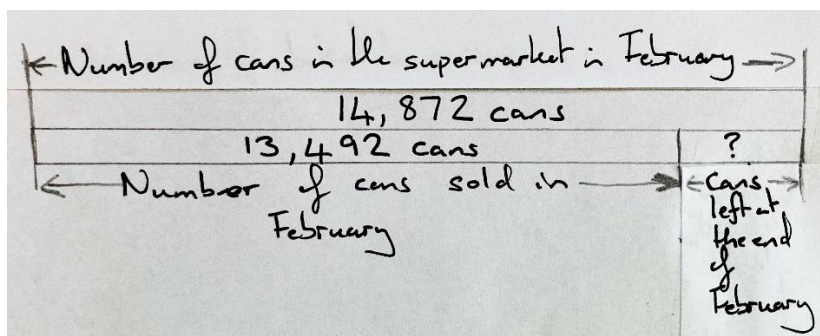 Number of cans in the supermarket in February
14,872 cans
13,492 cans
?
Number of cans sold in
February
Cans
left at
the end
of
February